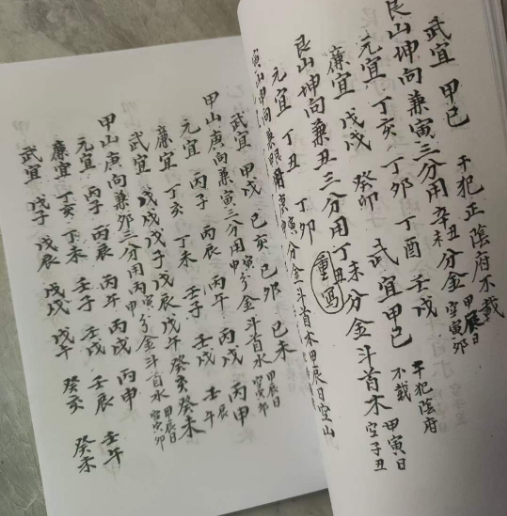 武宜 甲己 干犯正陰府不載
艮山坤向兼寅三分用辛丑辛未分金 甲辰日空寅卯
元宜 丁亥 丁卯 丁酉 壬戌 干犯陰府
廉宜 戊戌 癸卯 武宜甲己 不載 甲寅日空子丑
艮山坤向兼丑三分用丁丑丁未分金斗首木
元宜 丁丑 丁卯 重画
武宜 甲戌 己亥 己卯 己未
甲山庚向兼寅三分用 甲辰日空寅卯
元宜 丙子 丙辰 丙午 丙戌 丙申
廉宜 丁亥 丁未 壬子 壬戌 壬辰 壬午
武宜 戊戌 戊子 戊辰 戊午 癸亥 癸未
甲山庚向兼卯三分用丙寅丙申分金斗首水 甲辰日空寅卯
元宜 丙子 丙辰 丙午 丙戌 丙申
廉宜 丁亥 丁未 壬子 壬戌 壬辰 壬午
武宜 戊子 戊辰 戊戌 戊午 癸亥 癸未